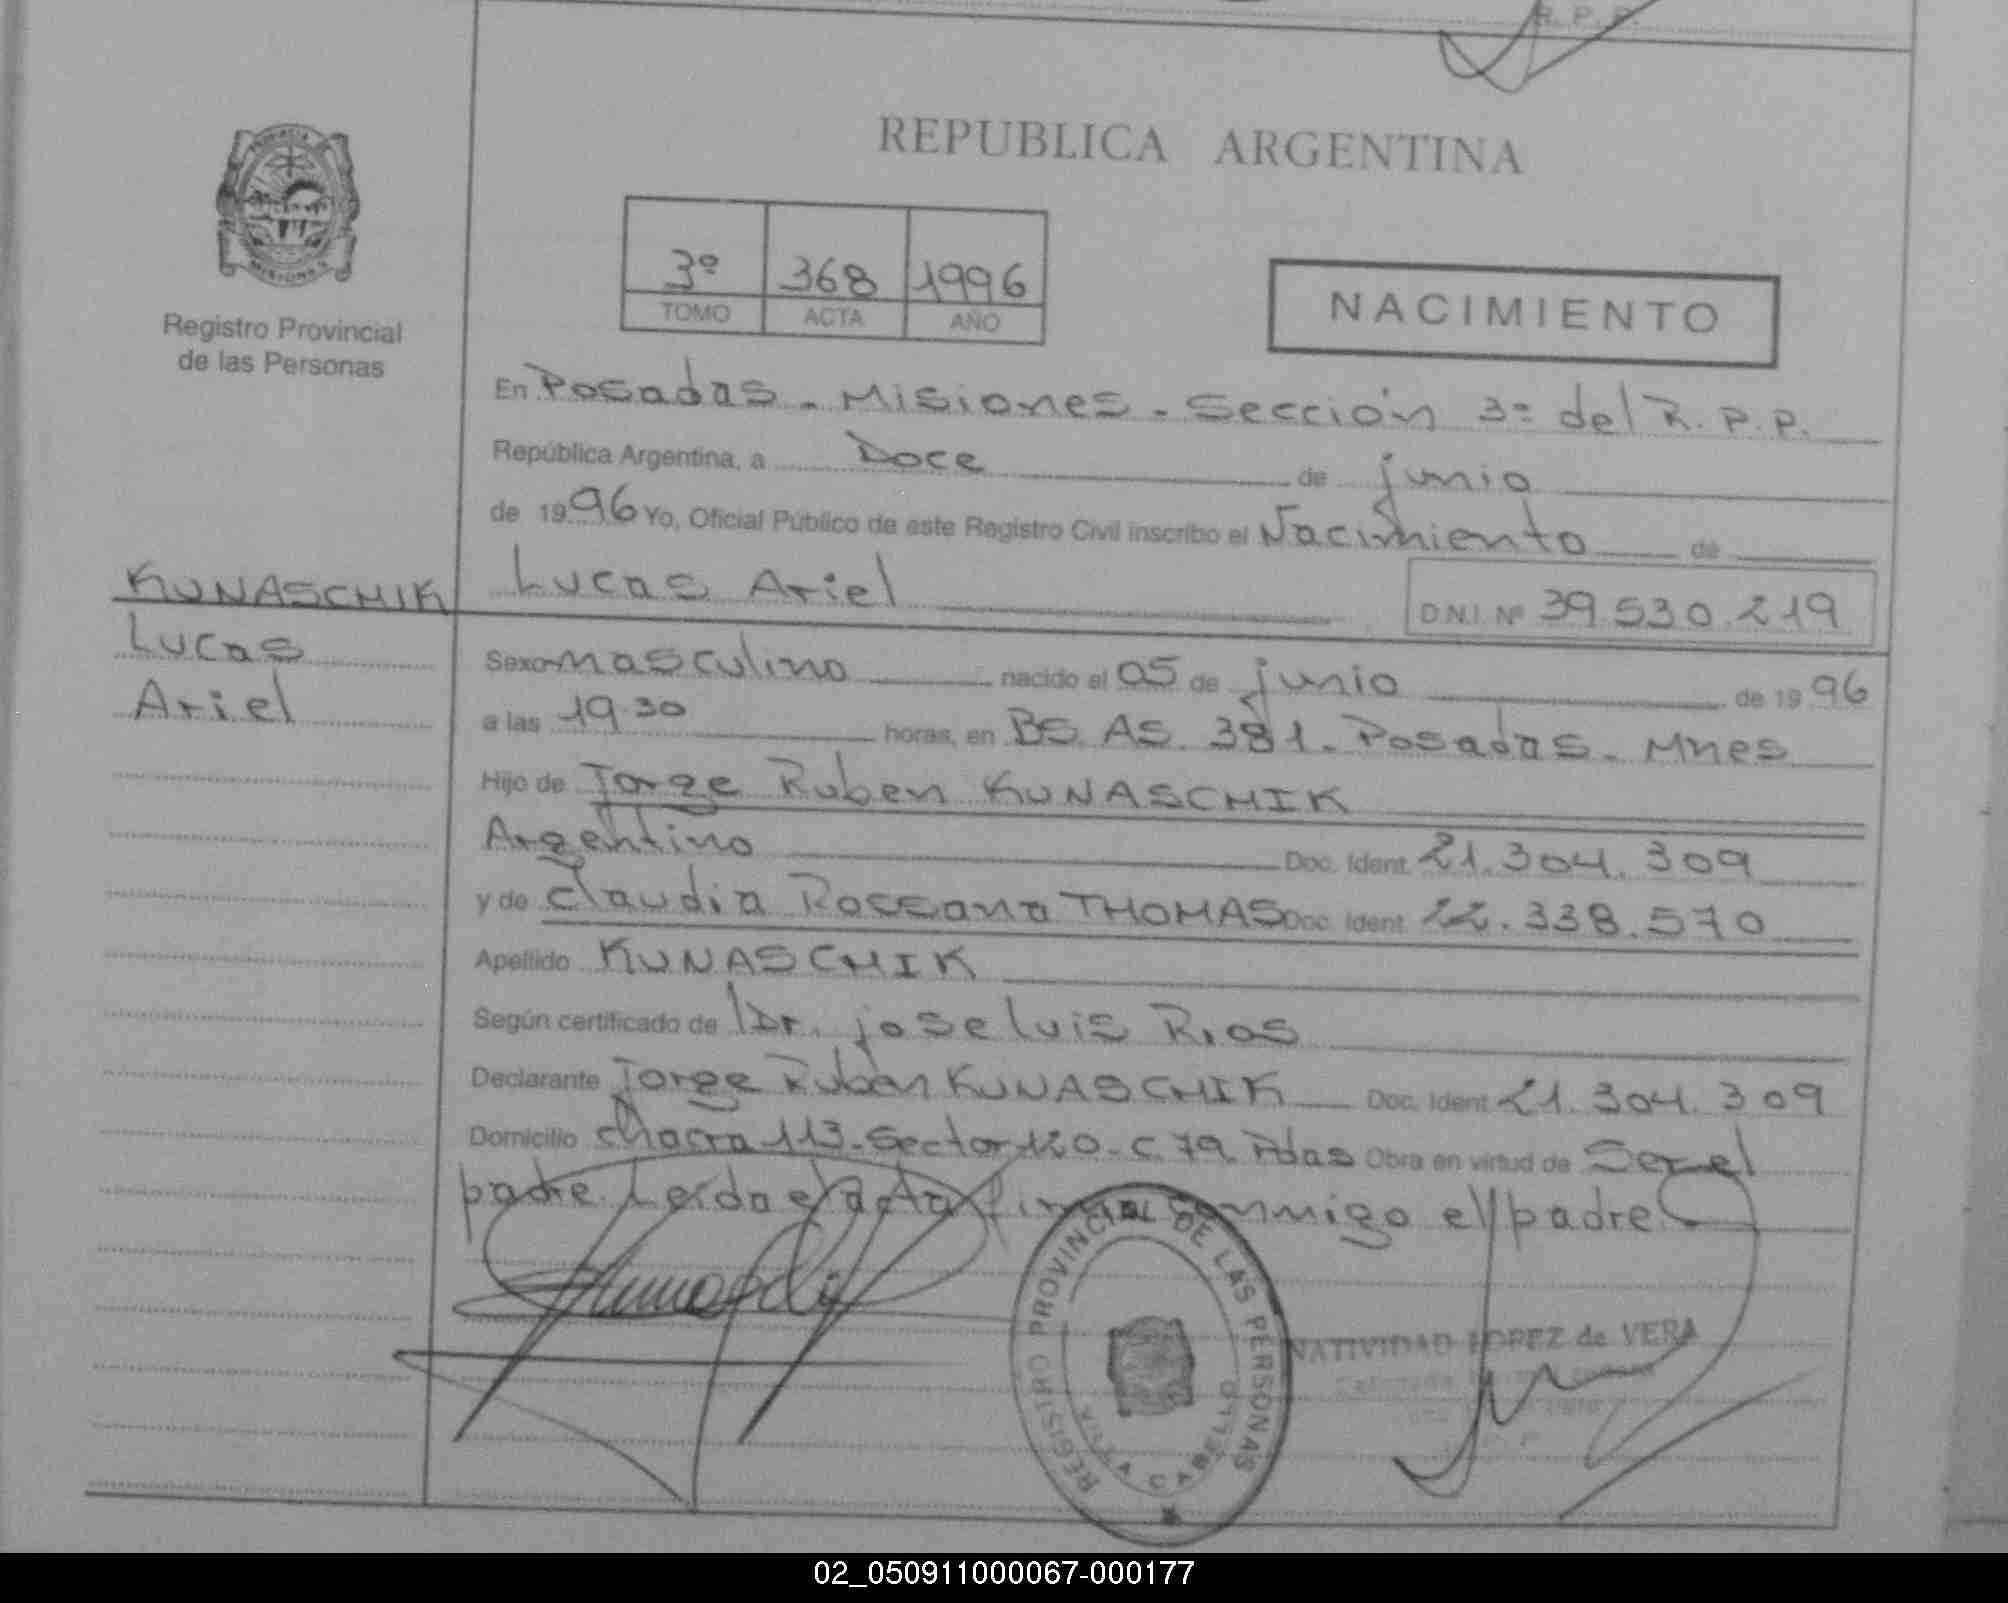 R. P. P.
REPUBLICA ARGENTINA
PROVINCIA
MISIONES
Registro Provincial
de las Personas
3º 368 1996
TOMO ACTA AÑO
NACIMIENTO
En Posadas - Misiones - Sección 3º del R. P. P.
República Argentina, a Doce de junio
de 1996 Yo, Oficial Público de este Registro Civil inscribo el Nacimiento de
KUNASCHIK
Lucas
Ariel
Lucas Ariel D.N.I. Nº 39.530.219
Sexo masculino nacido el 05 de junio de 1996
a las 19.30 horas, en BS. AS. 381 - Posadas - Mnes
Hijo de Jorge Ruben KUNASCHIK
Argentino Doc. Ident. 21.304.309
y de Claudia Rossana THOMAS Doc. Ident. 22.338.570
Apellido KUNASCHIK
Según certificado de Dr. jose luis Rios
Declarante Jorge Ruben KUNASCHIK Doc. Ident. 21.304.309
Domicilio chacra 113 - Sector 120 - C. 79. Pdas Obra en virtud de Ser el
padre. Leida el acta firma conmigo el padre
REGISTRO PROVINCIAL DE LAS PERSONAS
VILLA CABELLO
NATIVIDAD LOPEZ de VERA
02_050911000067-000177